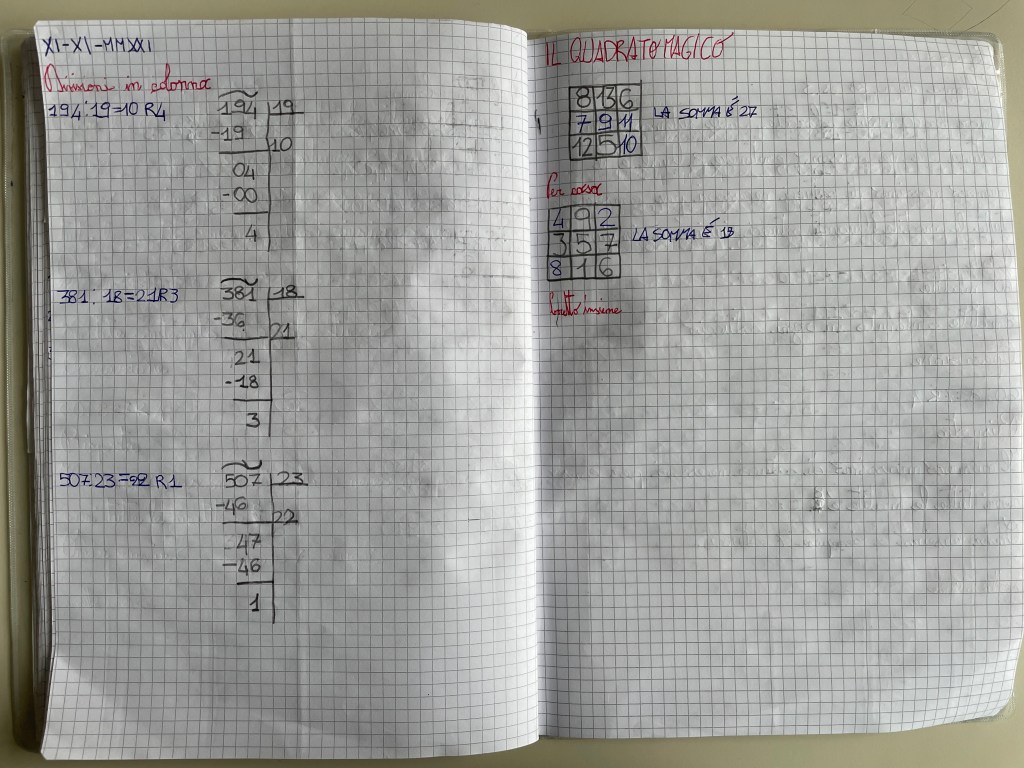 XI-XI-MMXXI
Divisioni in colonna
194:19=10 R4
194 19
-19 10
04
-00
4
381:18=21R3
381 18
-36 21
21
-18
3
507:23=22 R1
507 23
-46 22
47
-46
1
IL QUADRATO MAGICO
8 13 6
7 9 11
12 5 10
LA SOMMA É 27
Per casa
4 9 2
3 5 7
8 1 6
LA SOMMA É 15
insieme